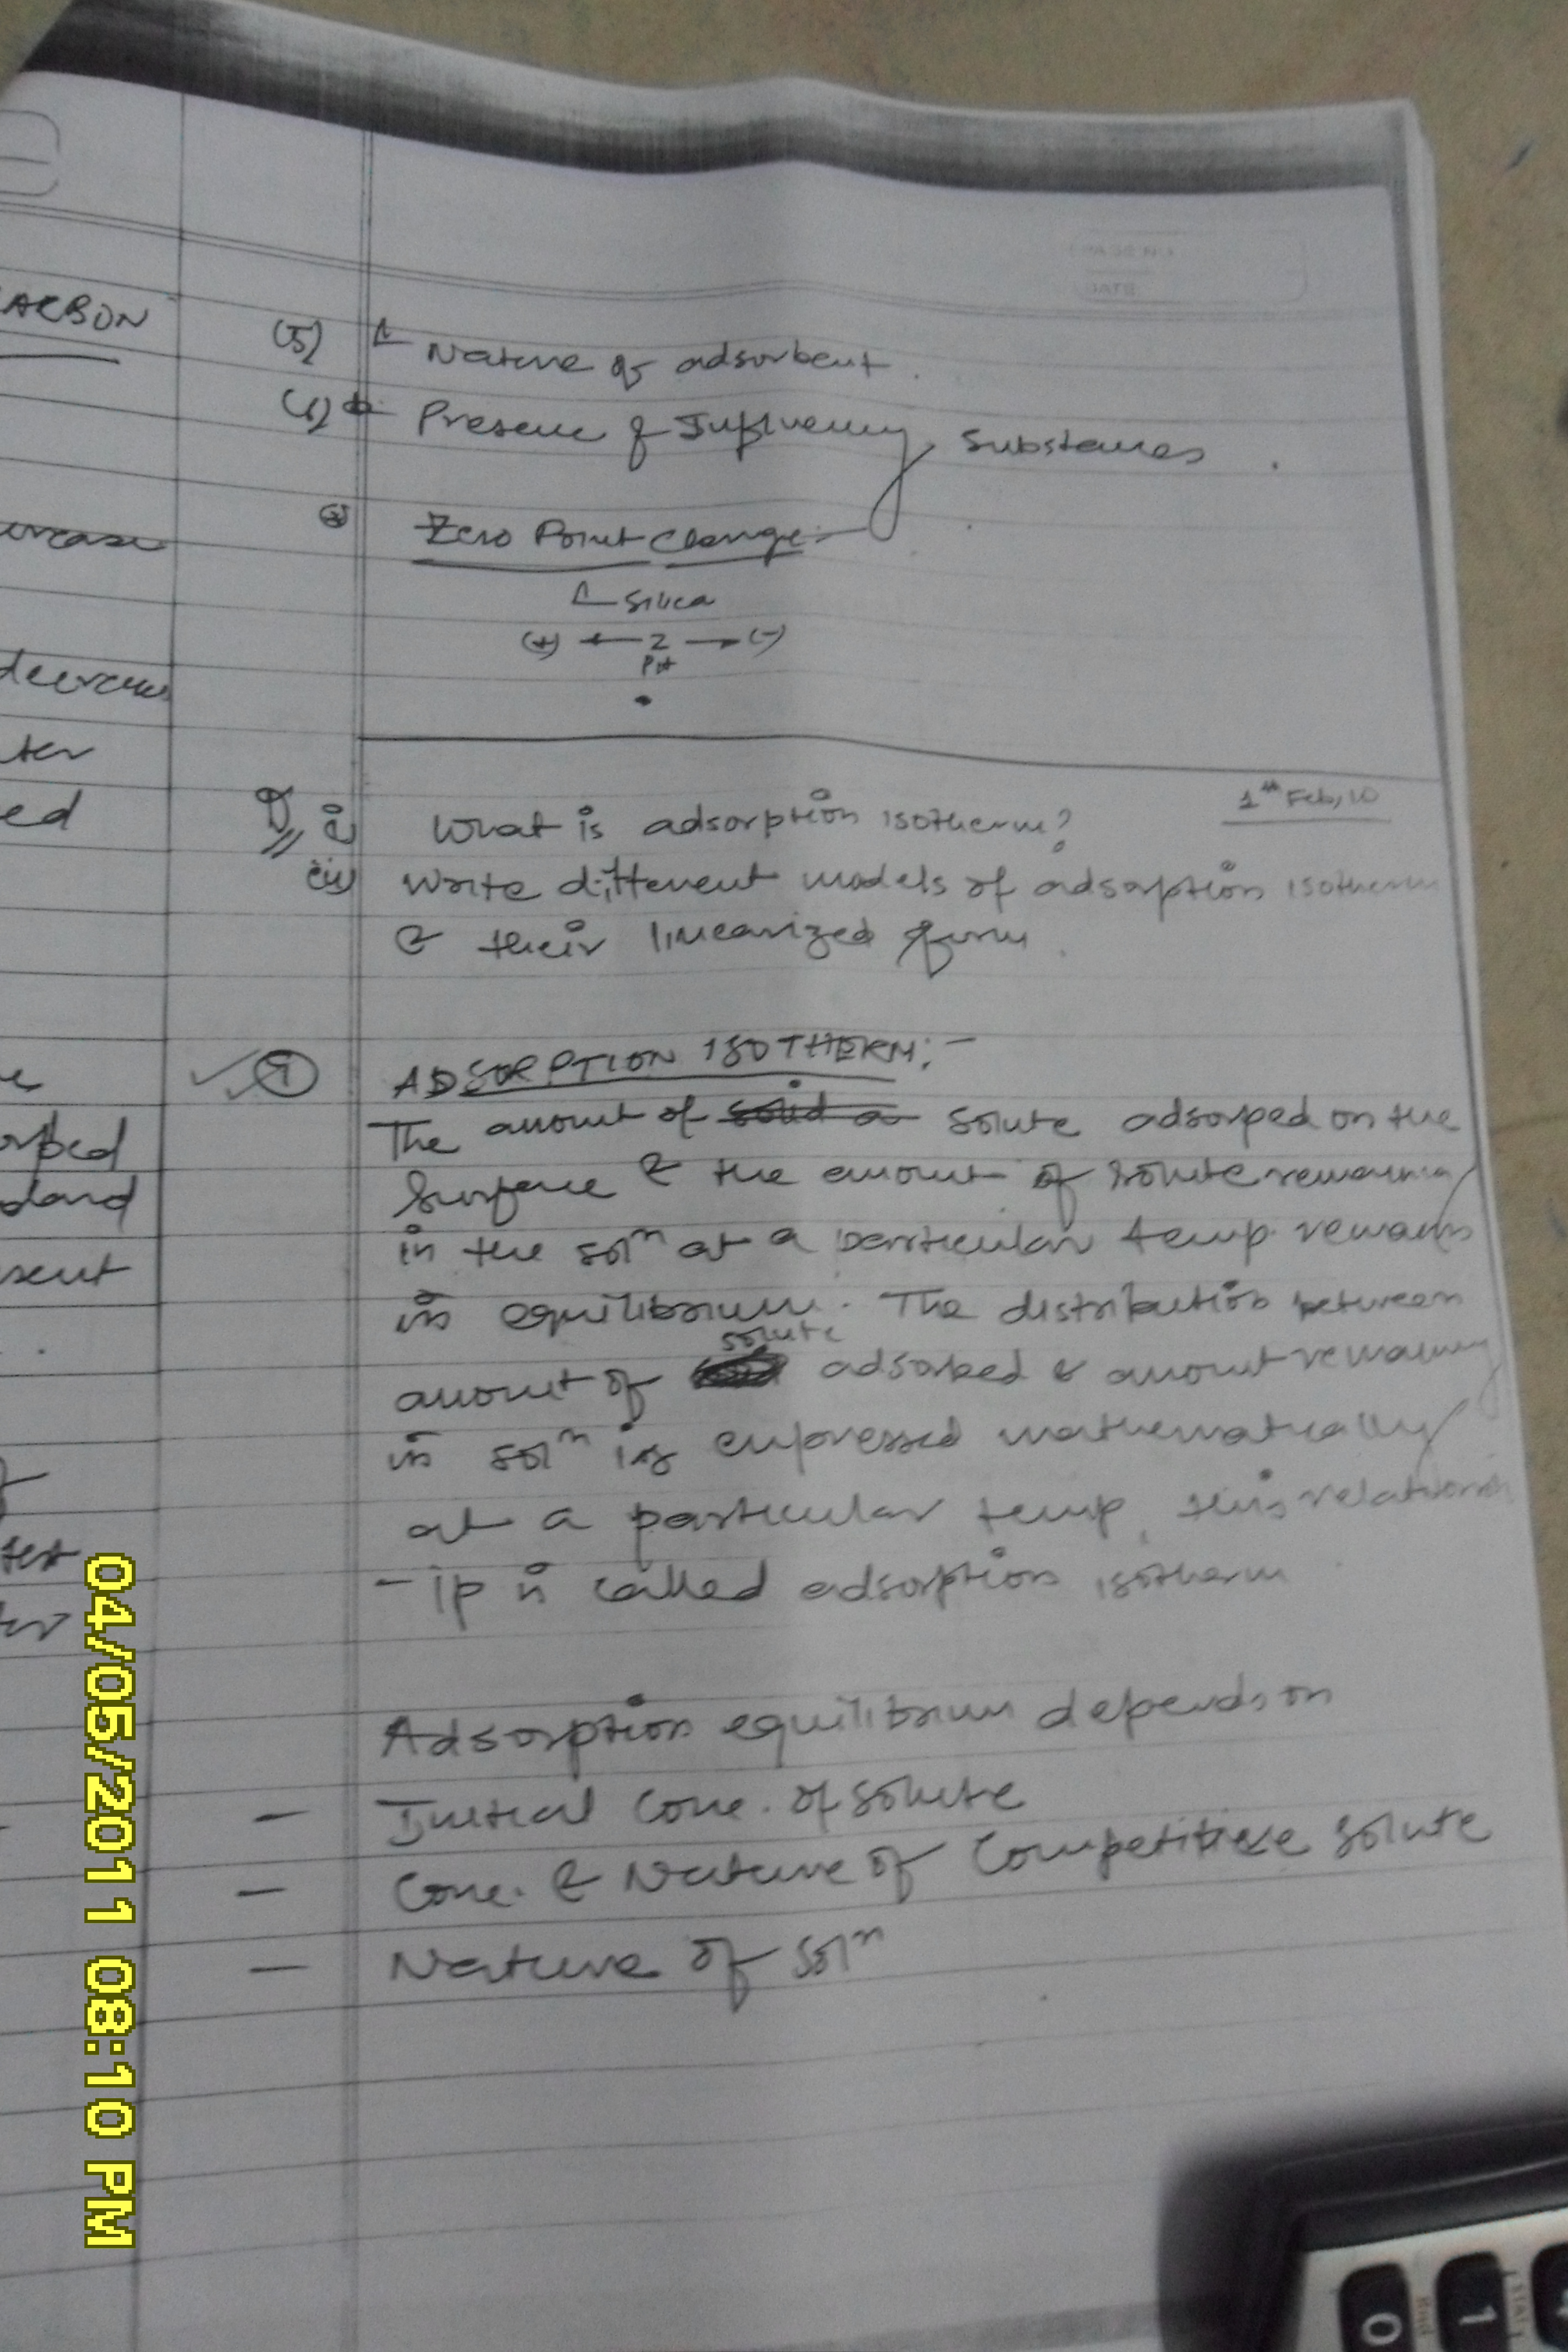 CARBON
decreas
ter
ed
orbed
sent
(5) Nature of adsorbent.
(6) Presence of Influency Substances.
Zero Point Change:-
Silica
(+) ← Z → (-)
Pnt
1st Feb, 10
Q i) What is adsorption isotherm?
(ii) Write different models of adsorption isotherm
& their linearized form.
i ADSORPTION ISOTHERM:-
The amount of solid a solute adsorped on the
Surface & the amount of solute remaining
in the solⁿ at a particular temp. remains
in equilibrium. The distribution between
solute
amount of adsorbed & amount remaining
in solⁿ is expressed mathematically
at a particular temp, this relationsh
-ip is called adsorption isotherm
Adsorption equilibrium depends on
- Initial Conc. of solute
- Conc. & Nature of Competitive solute
- Nature of solⁿ
04/05/2011 08:10 PM
PAGE NO
DATE
0 1
STAT